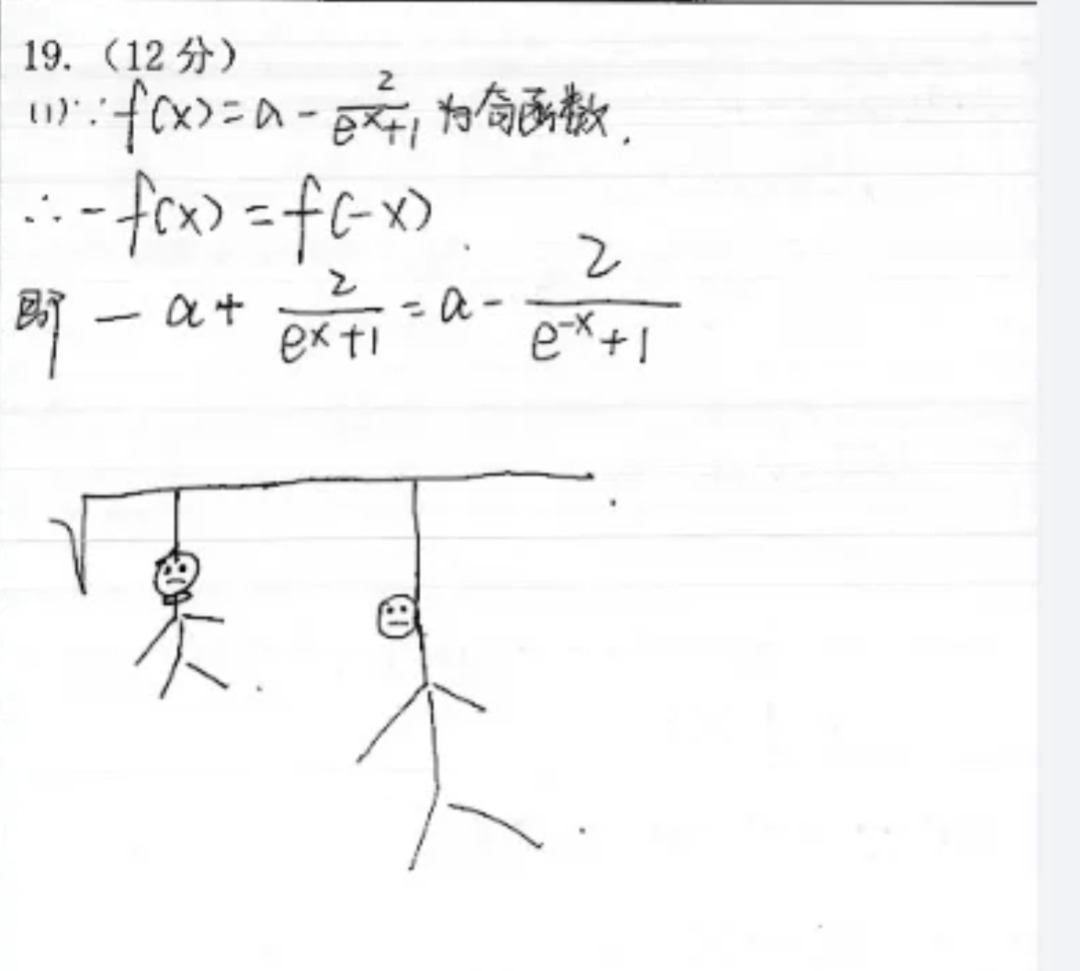 19.（12分）
(1)∵f(x)=a-\frac{2}{e^x+1}为奇函数.
∴-f(x)=f(-x).
即 -a+\frac{2}{e^x+1}=a-\frac{2}{e^{-x}+1}